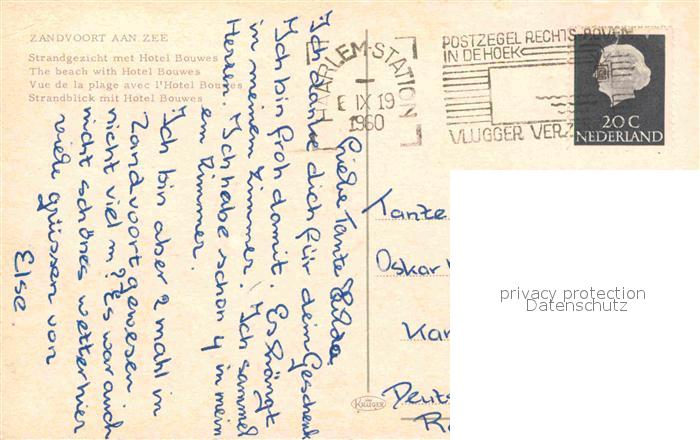 ZANDVOORT AAN ZEE
Strandgezicht met Hotel Bouwes
The beach with Hotel Bouwes
Vue de la plage avec l'Hotel Bouwes
Strandblick mit Hotel Bouwes
HAARLEM-STATION
E IX 19
1960
POSTZEGEL RECHTS BOVEN
IN DE HOEK
VLUGGER VERZ
20 C
NEDERLAND
Liebe Tante Hilda
Ich danke dich für dein Geschenk
Ich bin froh damit. Es hängt
in meinem Zimmer. Ich sammel
Herren. Ich habe schon 4 in mein
em Zimmer.
Ich bin aber 2 mahl in
Zandvoort gewesen
nicht viel m? Es war auch
nicht schönes wetter hier
viele grüssen von
Else.
Tante
Oskar
Kar
Deuts
KRÜGER
privacy protection
Datenschutz